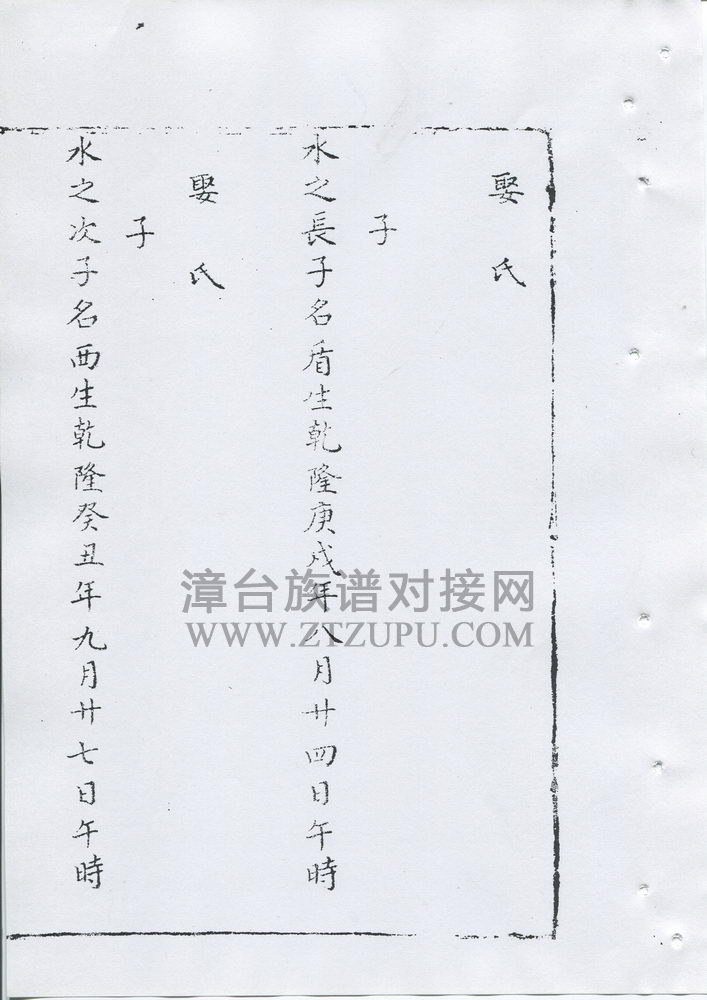 娶氏
子
水之長子名盾生乾隆庚戌年八月廿四日午時
娶氏
子
水之次子名西生乾隆癸丑年九月廿七日午時
漳台族谱对接网
WWW.ZTZUPU.COM